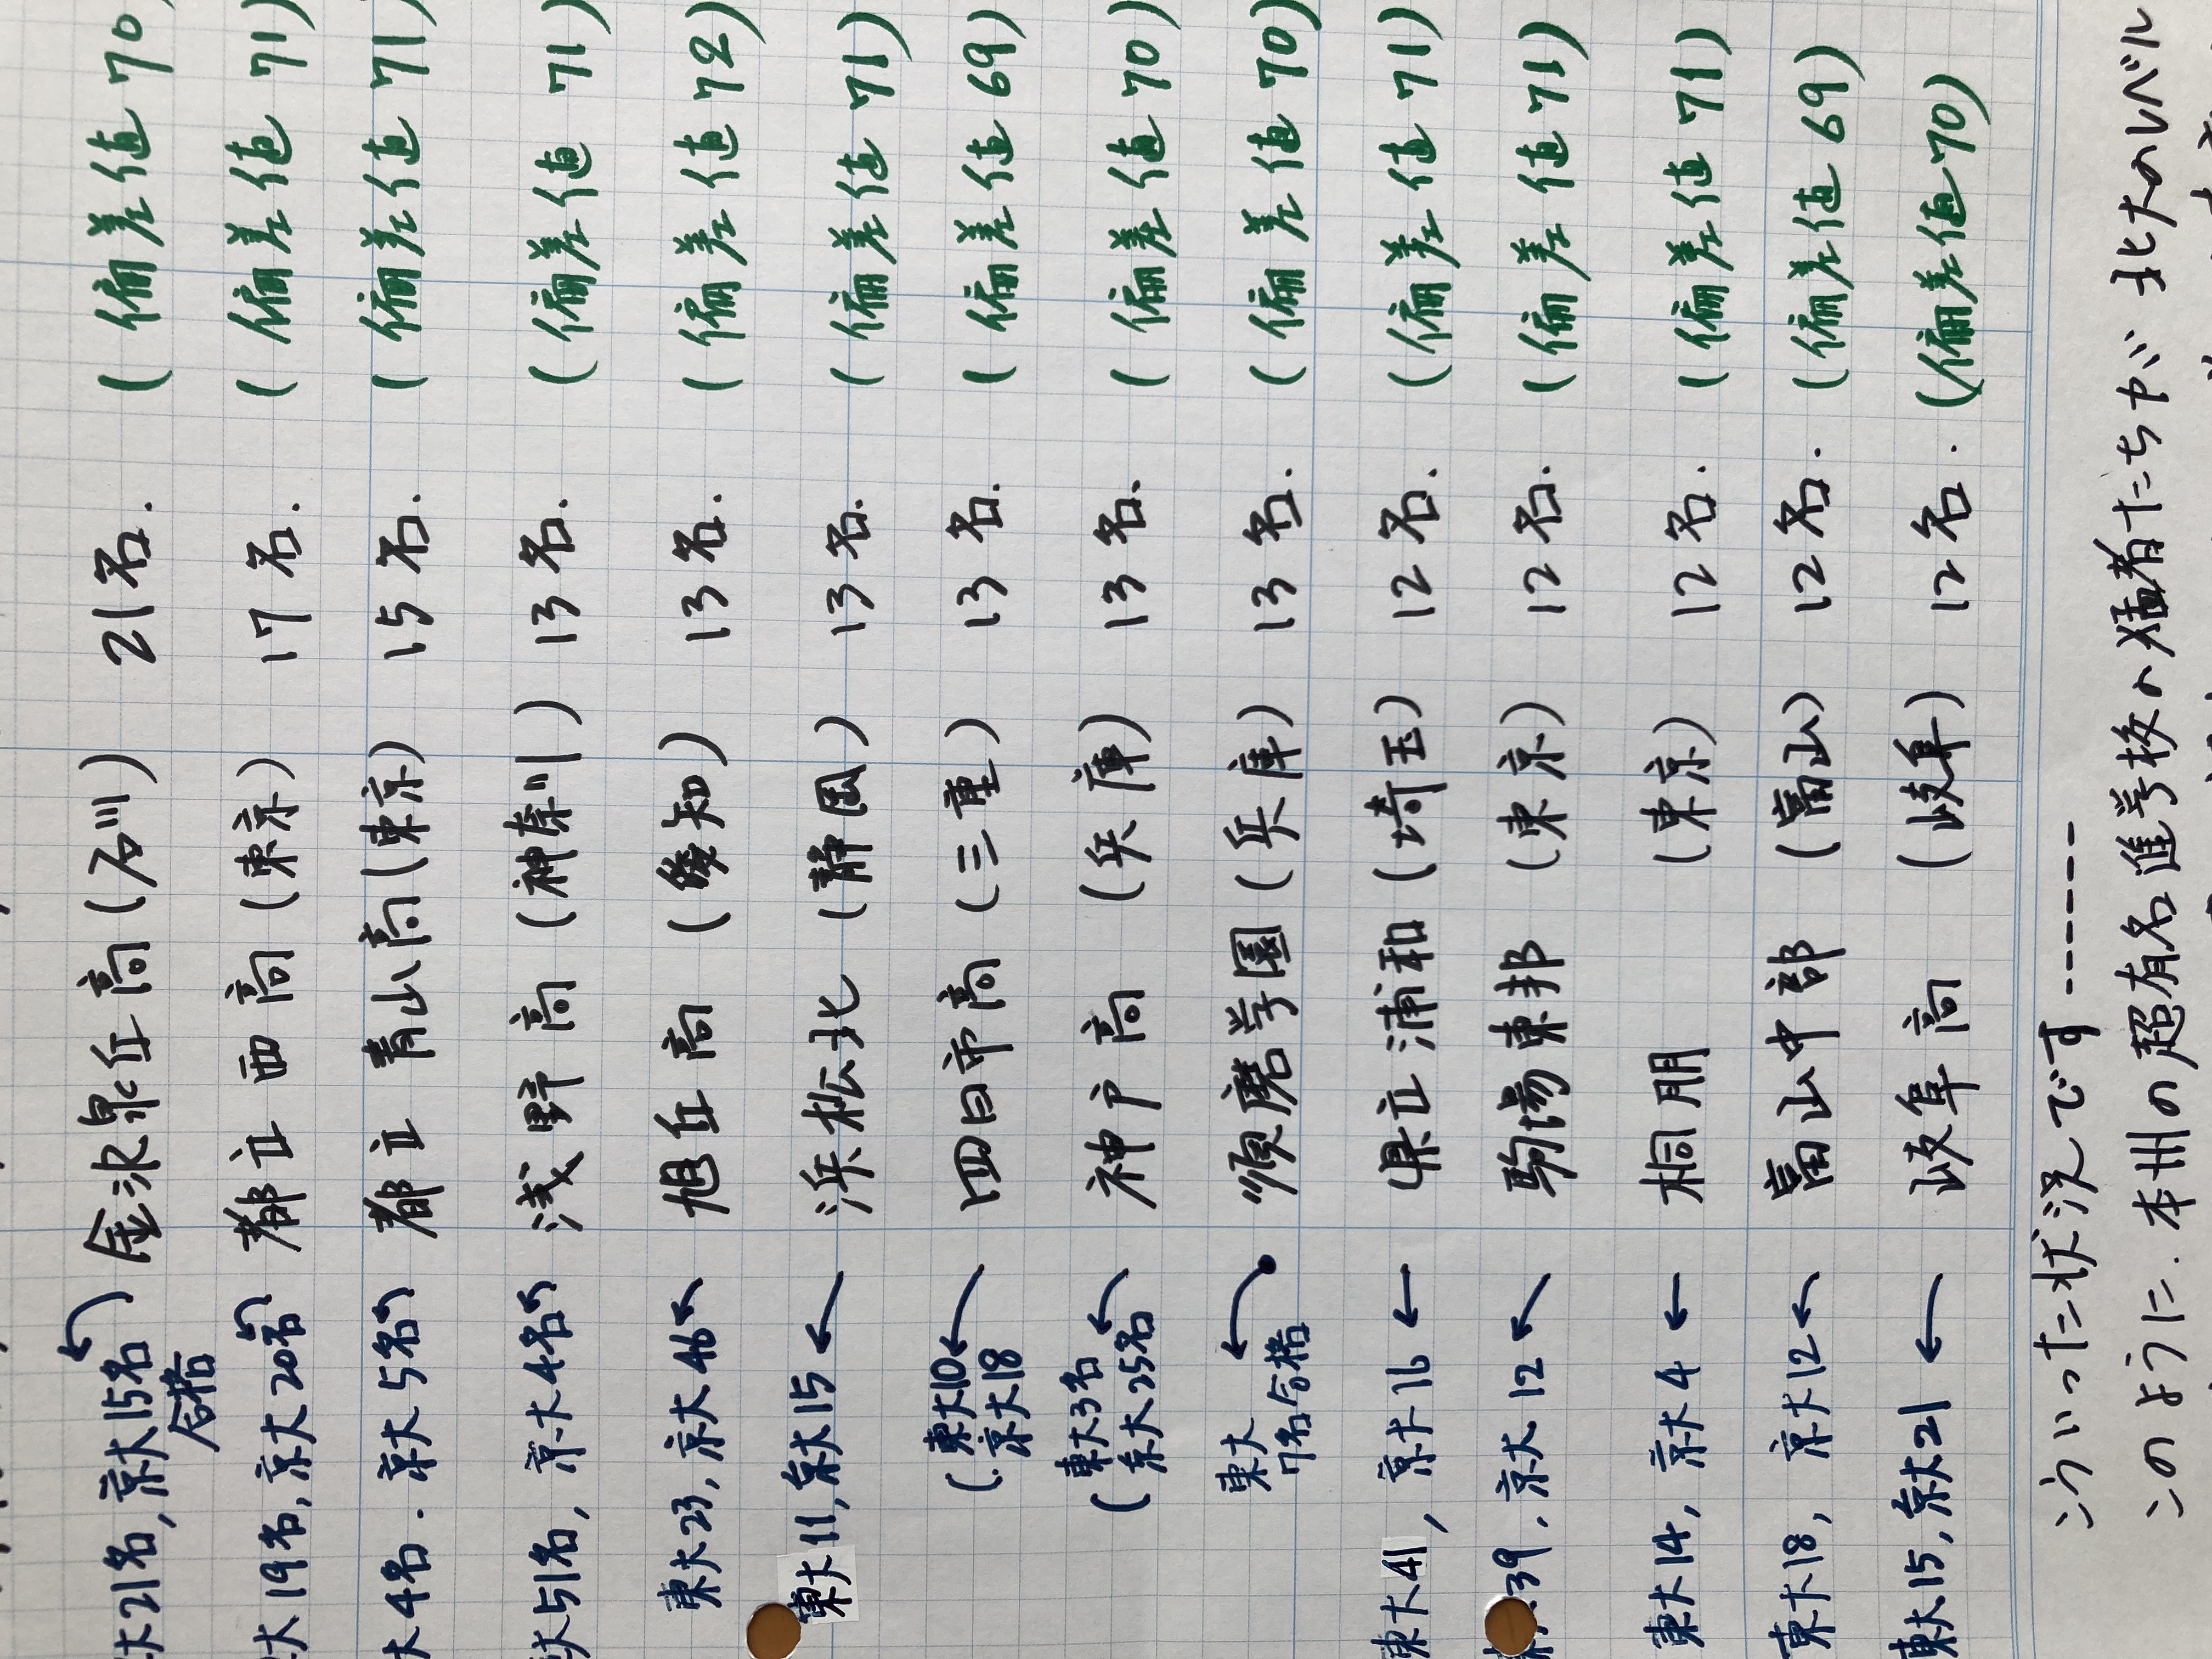 大21名, 京大15名 合格 金沢泉丘高 (石川) 21名. (偏差値 70)
大19名, 京大20名 都立 西 高 (東京) 17名. (偏差値 71)
大4名. 京大5名 都立 青山高 (東京) 15名. (偏差値 71)
大51名, 京大4名 浅野高 (神奈川) 13名. (偏差値 71)
東大23, 京大46 旭丘高 (愛知) 13名. (偏差値 72)
東大11, 京大15 ← 浜松北 (静岡) 13名. (偏差値 71)
(東大10. 京大18 ← 四日市高 (三重) 13名. (偏差値 69)
(東大3名 京大25名 ← 神戸高 (兵庫) 13名. (偏差値 70)
東大 7名合格 ← 須磨学園 (兵庫) 13名. (偏差値 70)
東大41, 京大16 ← 県立浦和 (埼玉) 12名. (偏差値 71)
39. 京大12 ← 駒場東邦 (東京) 12名. (偏差値 71)
東大14, 京大4 ← 桐朋 (東京) 12名. (偏差値 71)
東大18, 京大12 ← 富山中部 (富山) 12名. (偏差値 69)
東大15, 京大21 ← 岐阜高 (岐阜) 12名. (偏差値 70)
こういった状況です------
このように. 本州の超有名進学校の猛者たちが 北大のレベル